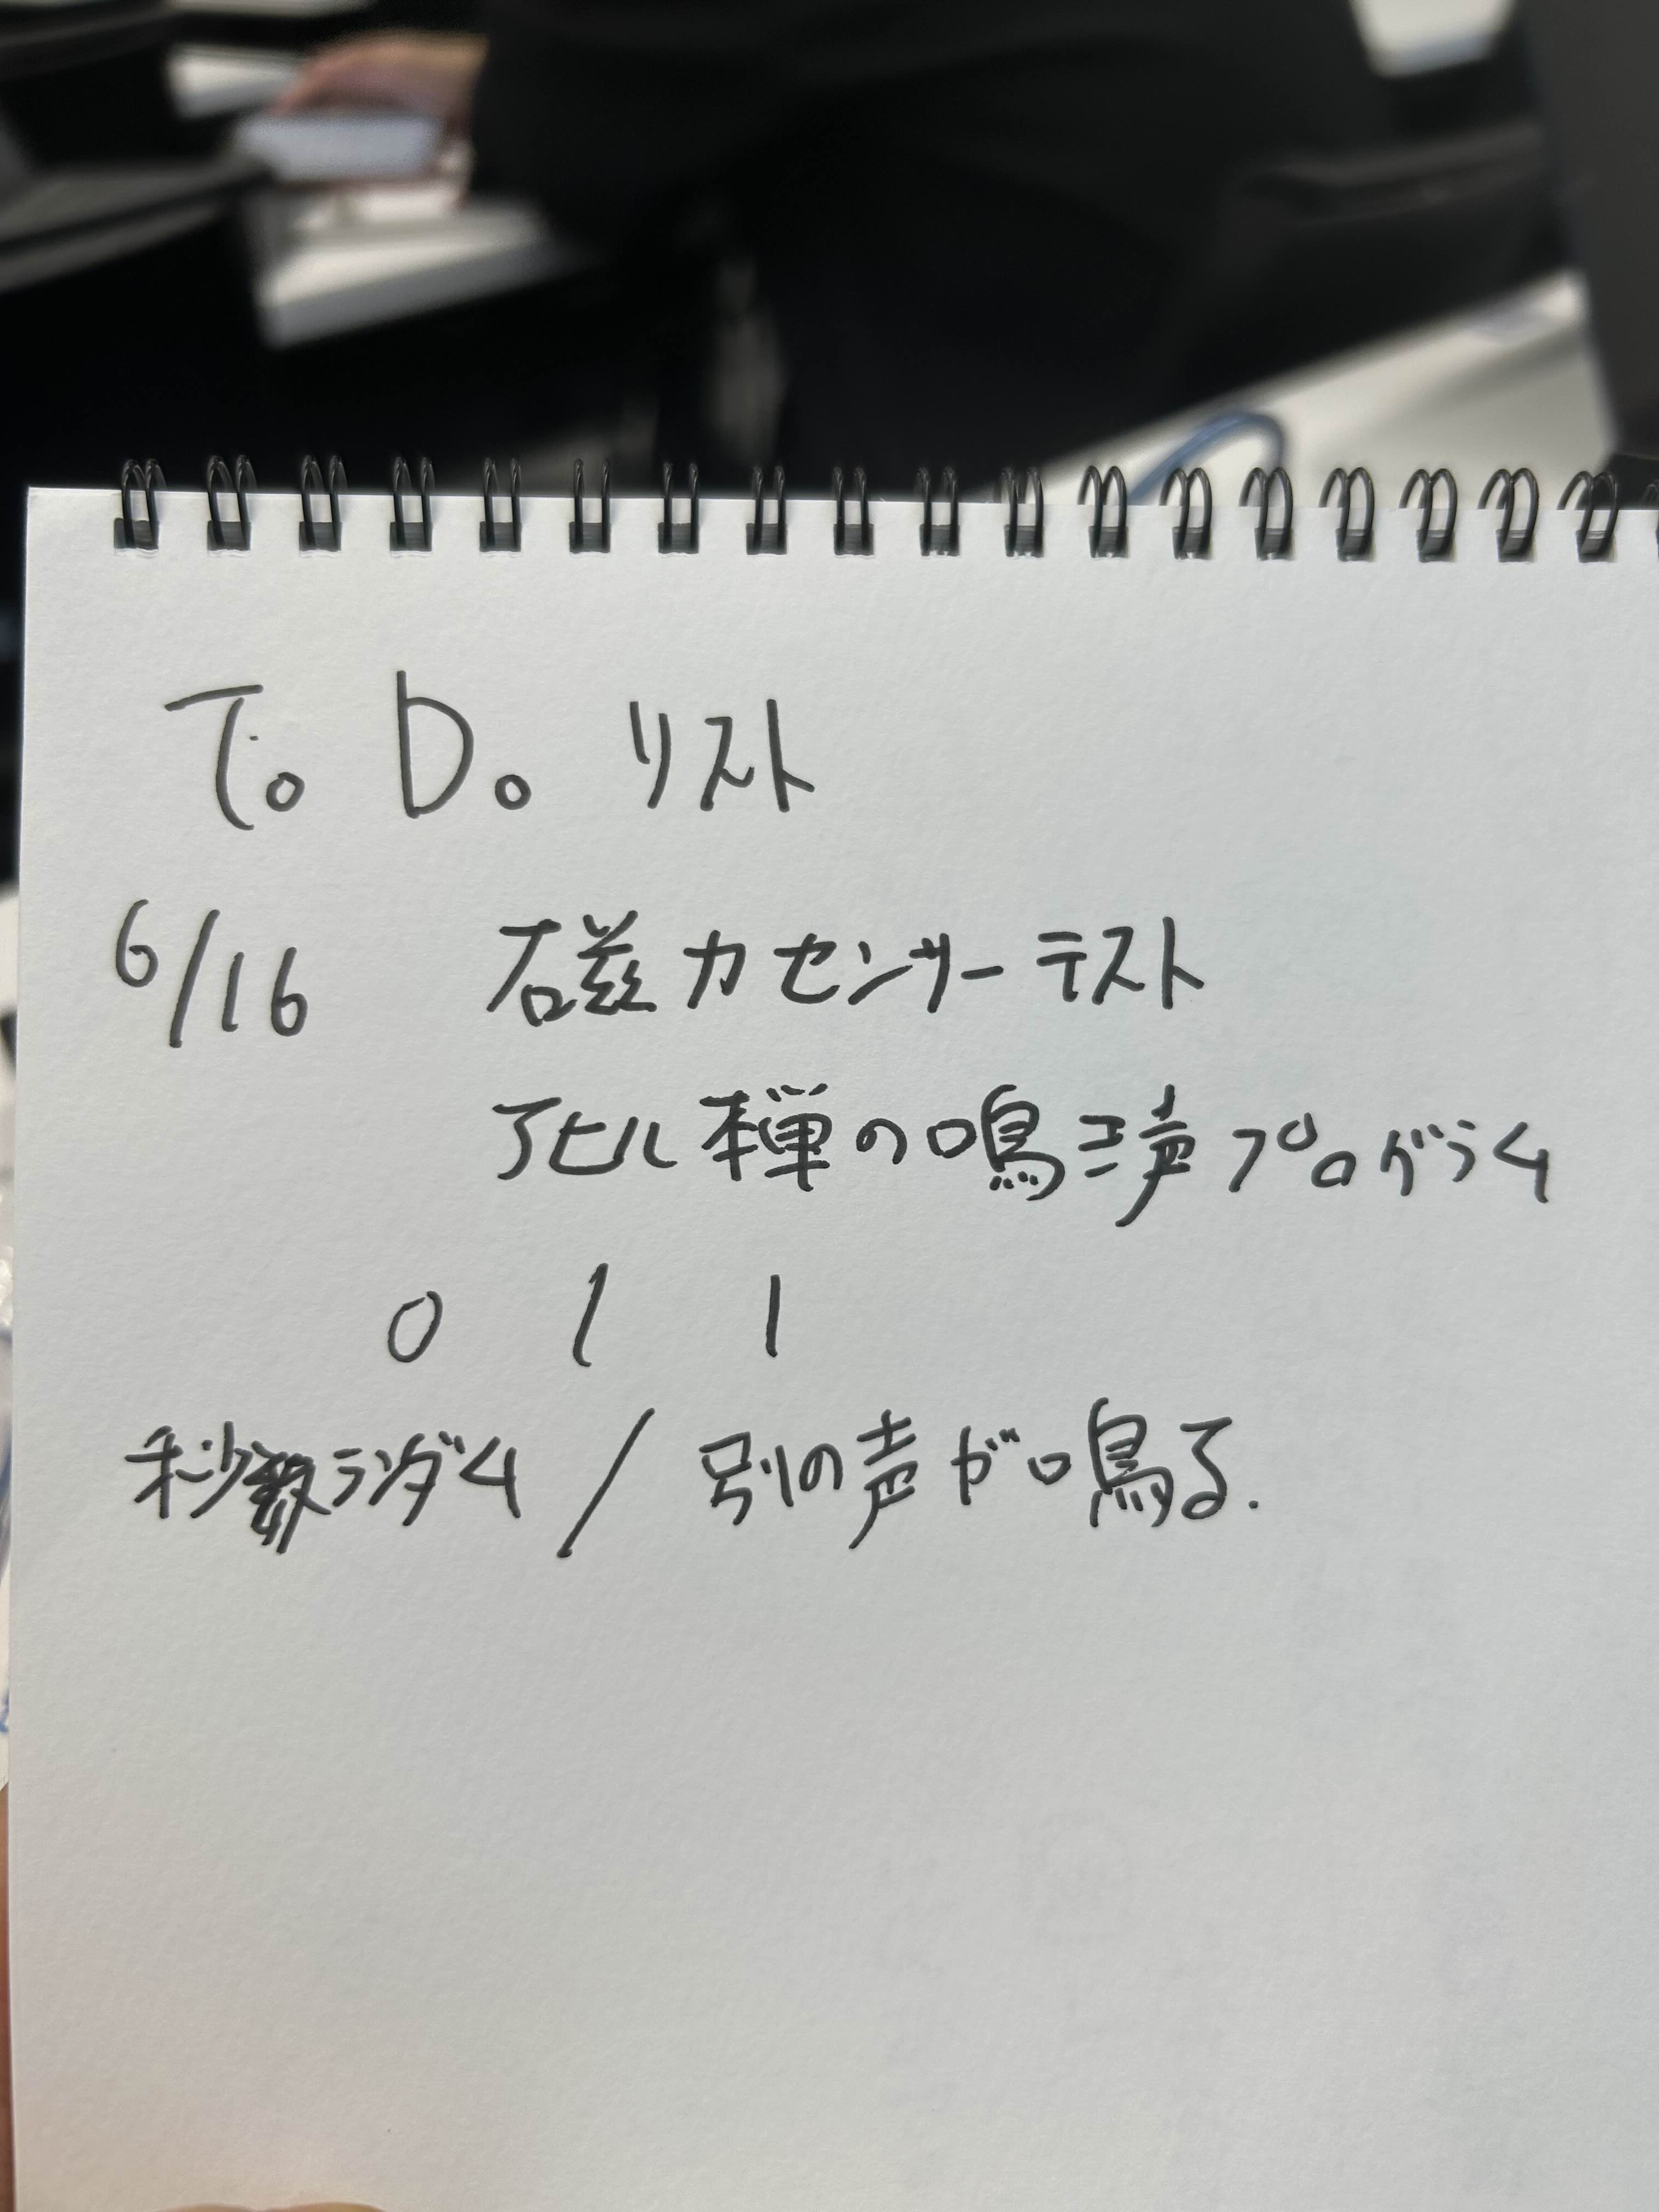 To Do リスト
6/16 磁力センサーテスト
アヒル禅の鳴き声プログラム
0 1 1
秒数ランダム / 別の声が鳴る.